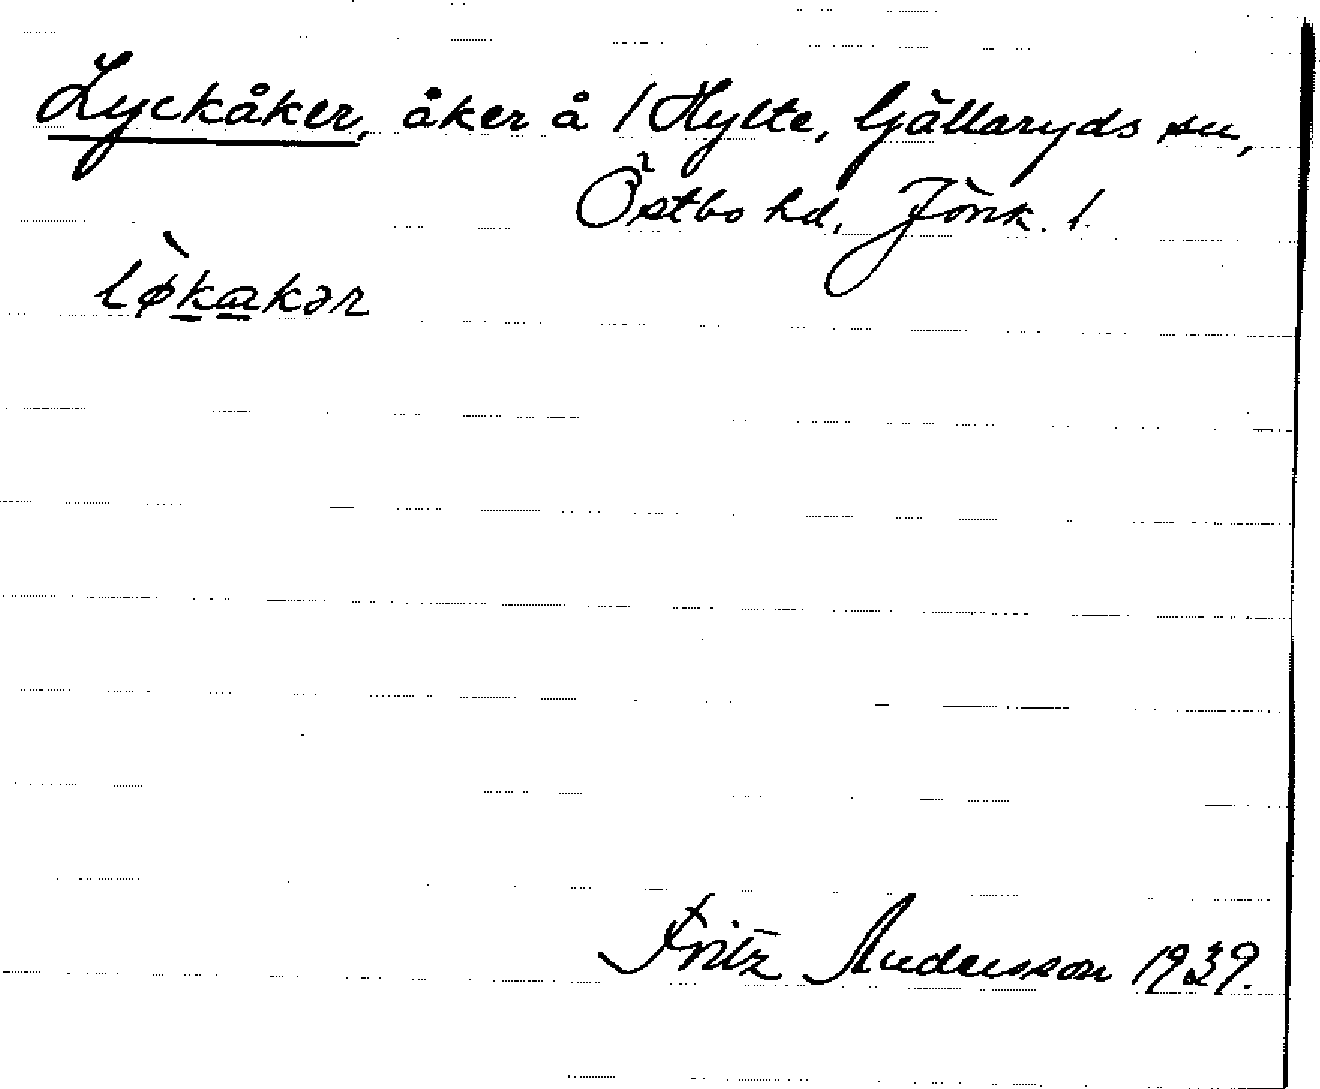 Lyckåker, åker å / Hylte, Gällaryds sn,
Östbo hd, Jönk. l.
lø̀kakər
Fritz Andersson 1939.